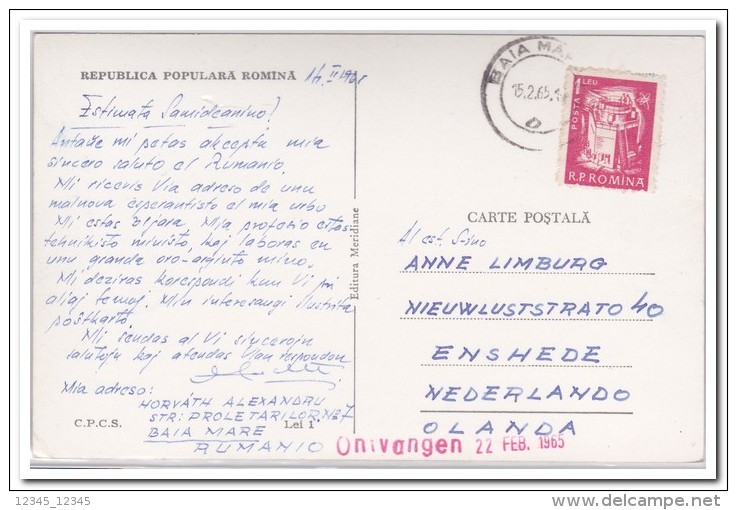 REPUBLICA POPULARĂ ROMÎNĂ 14. II 1965
Estimata Samideanino!
Antaŭe mi petas akceptu mia
sincero saluto el Rumanio.
Mi ricevis Via adreso de unu
malnova esperantisto el mia urbo
Mi estas jara. Mia profesio estas
tehnikisto ministo, kaj laboras en
unu granda oro-arĝinto mino.
Mi deziras korespondi kun Vi pri
aliaj temoj. Min interesaugi ilustrita
poŝtkarto.
Mi sendas al Vi sinceroju
salutoju kaj atendas Vian respondon
Mia adreso:
HORVÁTH ALEXANDRU
STR: PROLETARILOR. No 7
BAIA MARE
RUMANIO
C.P.C.S. Lei 1
Editura Meridiane
BAIA MARE
15.2.65.
POSTA 1 LEU
R.P.ROMINA
CARTE POȘTALĂ
Al est. S-ino
ANNE LIMBURG
NIEUWLUSTSTRATO 40
ENSHEDE
NEDERLANDO
OLANDA
Ontvangen 22 FEB. 1965
12345_12345
delcampe.net